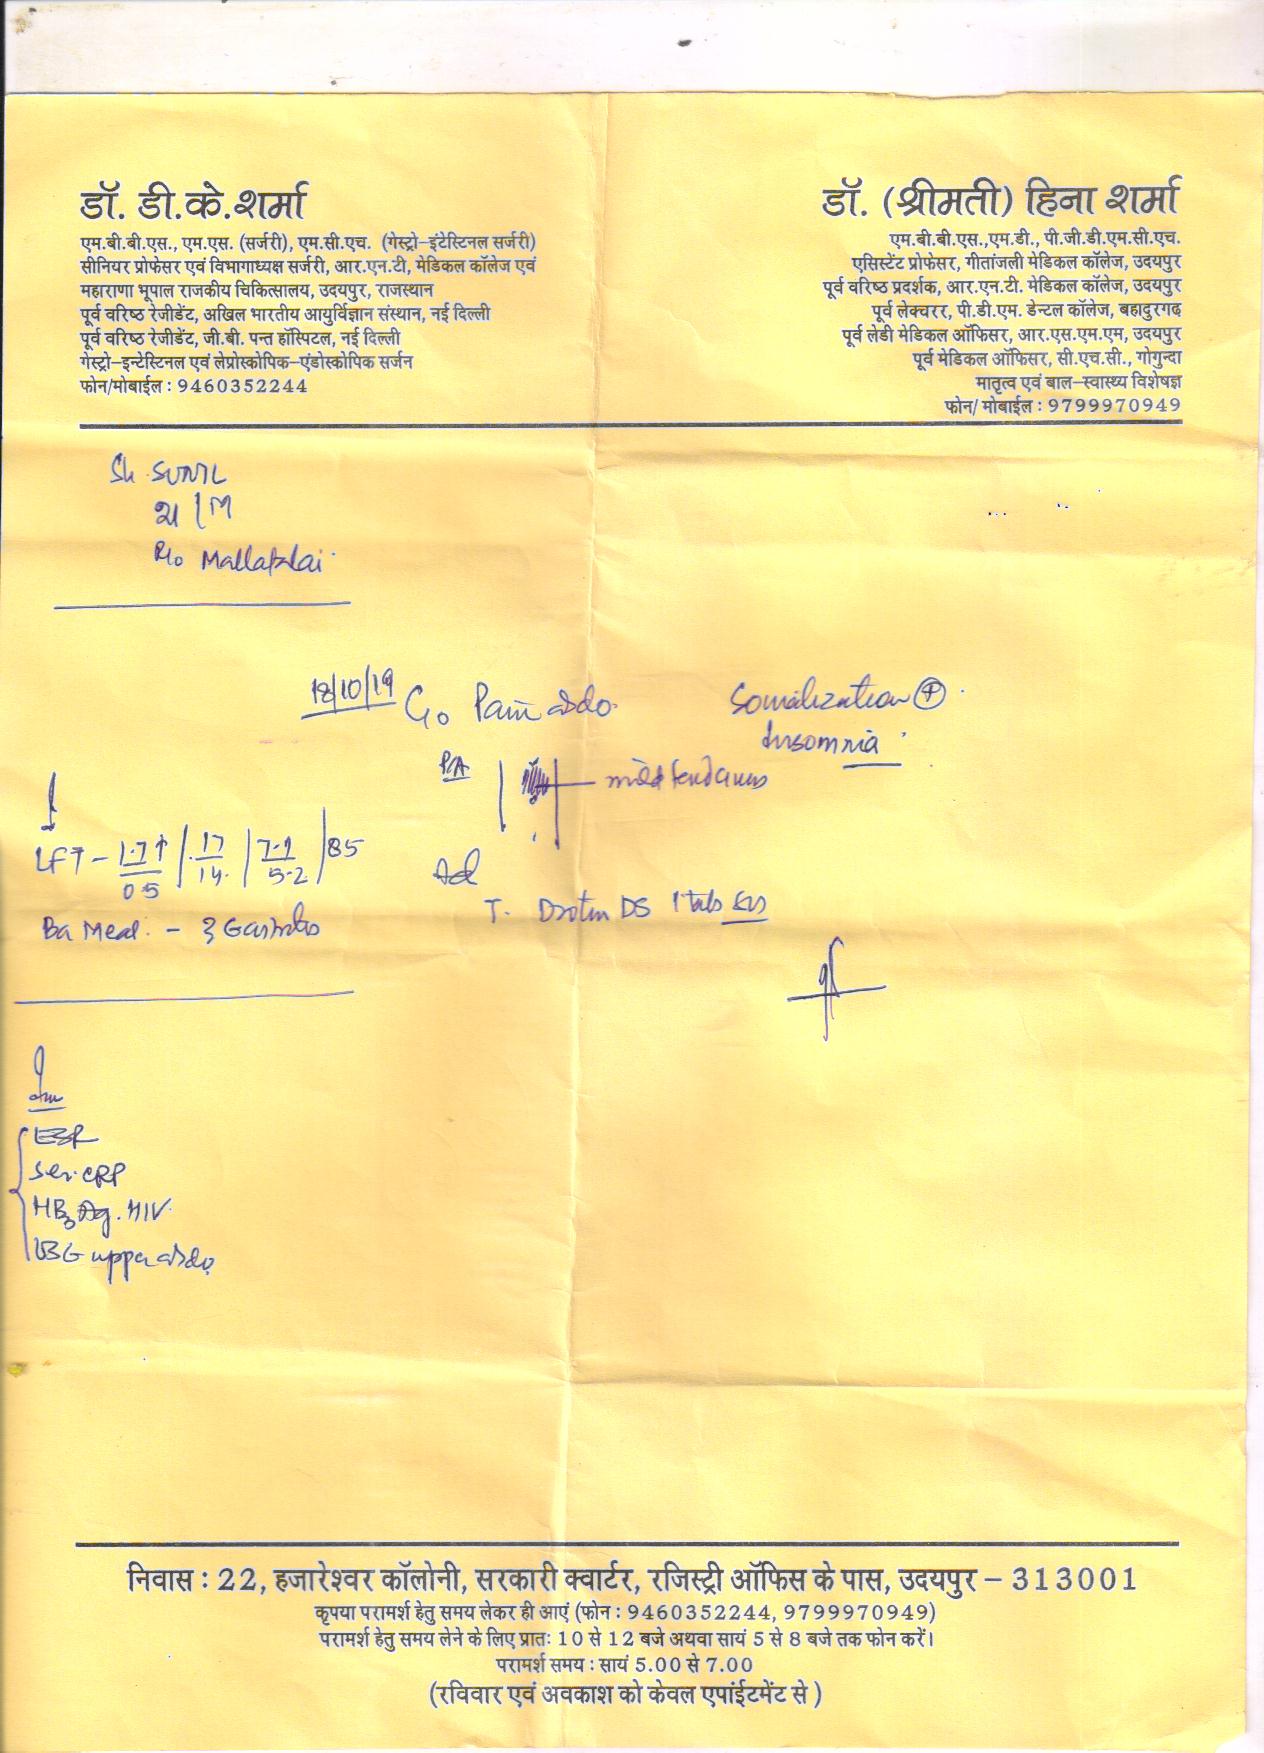 डॉ. डी.के.शर्मा
एम.बी.बी.एस., एम.एस. (सर्जरी), एम.सी.एच. (गेस्ट्रो-इंटेस्टिनल सर्जरी)
सीनियर प्रोफेसर एवं विभागाध्यक्ष सर्जरी, आर.एन.टी. मेडिकल कॉलेज एवं
महाराणा भूपाल राजकीय चिकित्सालय, उदयपुर, राजस्थान
पूर्व वरिष्ठ रेजीडेंट, अखिल भारतीय आयुर्विज्ञान संस्थान, नई दिल्ली
पूर्व वरिष्ठ रेजीडेंट, जी.बी. पन्त हॉस्पिटल, नई दिल्ली
गेस्ट्रो-इन्टेस्टिनल एवं लेप्रोस्कोपिक-एंडोस्कोपिक सर्जन
फोन/मोबाईल : 9460352244
डॉ. (श्रीमती) हिना शर्मा
एम.बी.बी.एस.,एम.डी., पी.जी.डी.एम.सी.एच.
एसिस्टेंट प्रोफेसर, गीतांजली मेडिकल कॉलेज, उदयपुर
पूर्व वरिष्ठ प्रदर्शक, आर.एन.टी. मेडिकल कॉलेज, उदयपुर
पूर्व लेक्चरर, पी.डी.एम. डेन्टल कॉलेज, बहादुरगढ़
पूर्व लेडी मेडिकल ऑफिसर, आर.एस.एम.एम, उदयपुर
पूर्व मेडिकल ऑफिसर, सी.एच.सी., गोगुन्दा
मातृत्व एवं बाल-स्वास्थ्य विशेषज्ञ
फोन/ मोबाईल : 9799970949
Sh. SUNIL
/M
R/o Mallatalai
18/10/19 C/o Pain abdo. Somatization +
Insomnia
P/A mild tenderness
LFT - 1.7↑/0.5 | 17/14 | 7.1/5.2 | 85
Ad
T. Drotin DS 1 tab SOS
Ba Meal - Gastritis
Inv
ESR
Ser. CRP
HBsAg. HIV
USG upper abdo
निवास : 22, हजारेश्वर कॉलोनी, सरकारी क्वार्टर, रजिस्ट्री ऑफिस के पास, उदयपुर – 313001
कृपया परामर्श हेतु समय लेकर ही आएं (फोन : 9460352244, 9799970949)
परामर्श हेतु समय लेने के लिए प्रातः 10 से 12 बजे अथवा सायं 5 से 8 बजे तक फोन करें।
परामर्श समय : सायं 5.00 से 7.00
(रविवार एवं अवकाश को केवल एपांईटमेंट से )